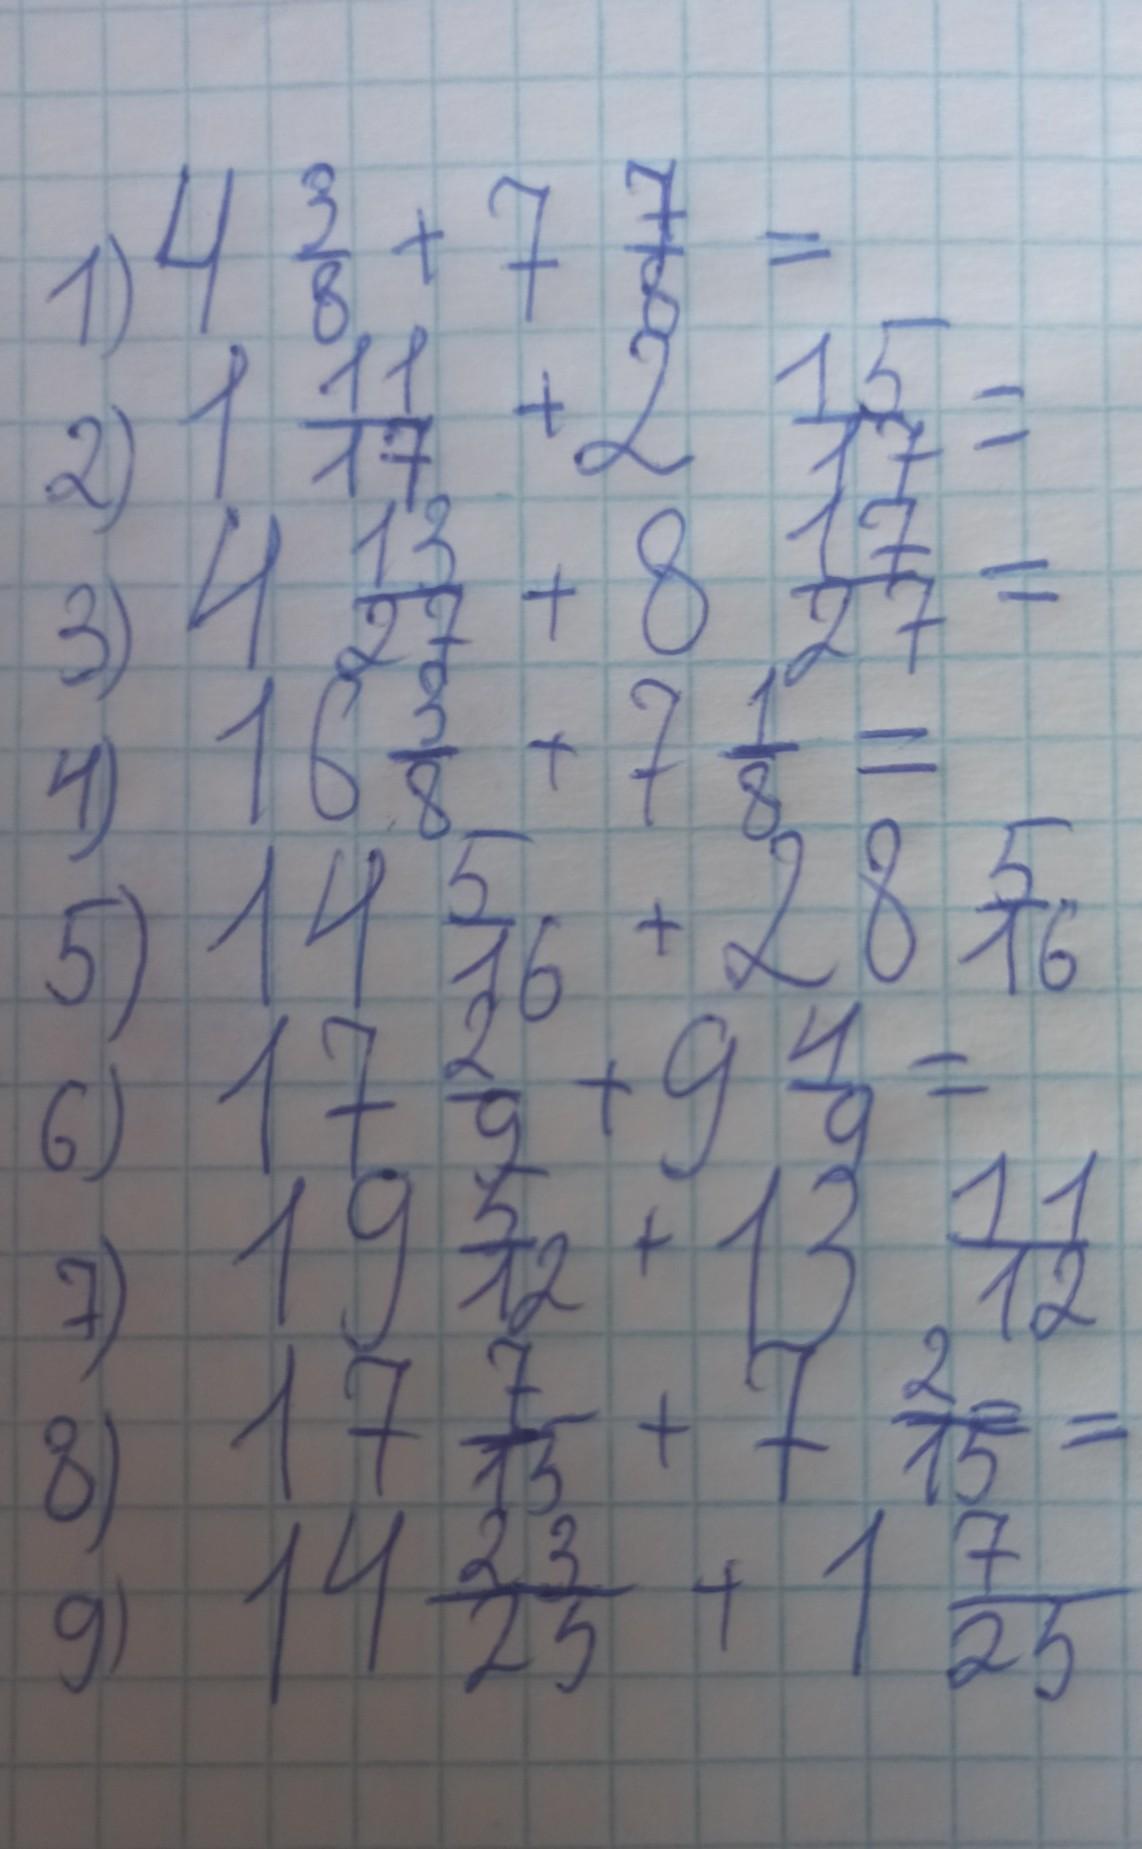 1) 4 3/8 + 7 7/8 =
2) 1 11/17 + 2 15/17 =
3) 4 13/27 + 8 17/27 =
4) 16 3/8 + 7 1/8 =
5) 14 5/16 + 28 5/16
6) 17 2/9 + 9 4/9 =
7) 19 5/12 + 13 11/12
8) 17 7/15 + 7 2/15 =
9) 14 23/25 + 1 7/25